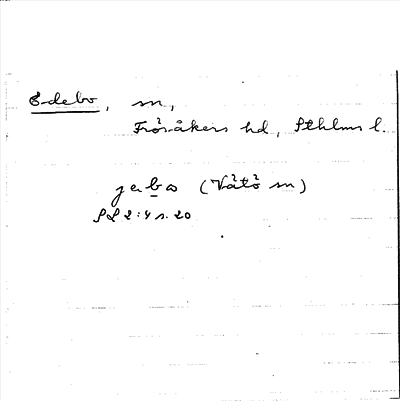 Edebo, sn,
Frösåkers hd, Sthlms l.
jerba (Vätö sn)
SL 2:4 s. 20